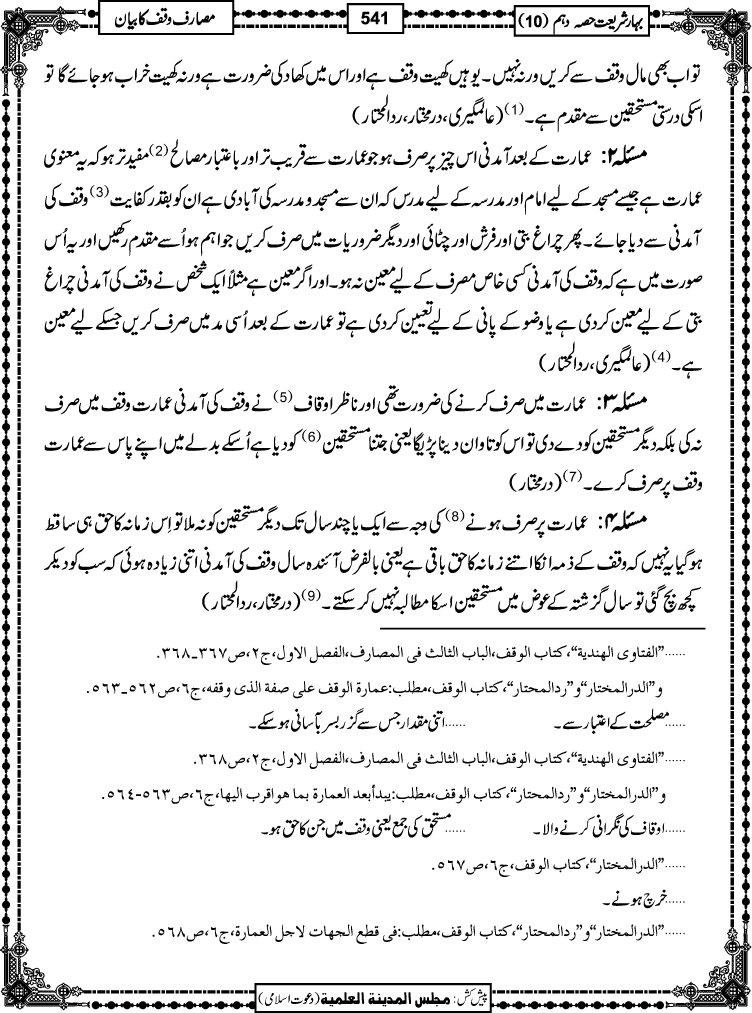 بہار شریعت حصہ دہم (10)
541
مصارف وقف کا بیان
تو اب بھی مال وقف سے کریں ورنہ نہیں۔ یوہیں کھیت وقف ہے اور اس میں کھاد کی ضرورت ہے ورنہ کھیت خراب ہو جائے گا تو
اسکی درستی مستحقین سے مقدم ہے۔(1) (عالمگیری، درمختار، ردالمحتار)
مسئلہ ۲: عمارت کے بعد آمدنی اس چیز پر صرف ہو جو عمارت سے قریب تر اور باعتبار مصالح(2) مفید تر ہو کہ یہ معنوی
عمارت ہے جیسے مسجد کے لیے امام اور مدرسہ کے لیے مدرس کہ ان سے مسجد و مدرسہ کی آبادی ہے ان کو بقدر کفایت(3) وقف کی
آمدنی سے دیا جائے۔ پھر چراغ بتی اور فرش اور چٹائی اور دیگر ضروریات میں صرف کریں جو اہم ہو اُسے مقدم رکھیں اور یہ اُس
صورت میں ہے کہ وقف کی آمدنی کسی خاص مصرف کے لیے معین نہ ہو۔ اور اگر معین ہے مثلاً ایک شخص نے وقف کی آمدنی چراغ
بتی کے لیے معین کردی ہے یا وضو کے پانی کے لیے تعیین کردی ہے تو عمارت کے بعد اُسی مد میں صرف کریں جسکے لیے معین
ہے۔(4) (عالمگیری، ردالمحتار)
مسئلہ ۳: عمارت میں صرف کرنے کی ضرورت تھی اور ناظر اوقاف(5) نے وقف کی آمدنی عمارت وقف میں صرف
نہ کی بلکہ دیگر مستحقین کو دے دی تو اس کو تاوان دینا پڑیگا یعنی جتنا مستحقین(6) کو دیا ہے اُسکے بدلے میں اپنے پاس سے عمارت
وقف پر صرف کرے۔(7) (درمختار)
مسئلہ ۴: عمارت پر صرف ہونے(8) کی وجہ سے ایک یا چند سال تک دیگر مستحقین کو نہ ملا تو اِس زمانہ کا حق ہی ساقط
ہو گیا یہ نہیں کہ وقف کے ذمہ انکا اتنے زمانہ کا حق باقی ہے یعنی بالفرض آئندہ سال وقف کی آمدنی اتنی زیادہ ہوئی کہ سب کو دیکر
کچھ بچ گئی تو سال گزشتہ کے عوض میں مستحقین اسکا مطالبہ نہیں کر سکتے۔(9) (درمختار، ردالمحتار)
......”الفتاوی الهندية“، کتاب الوقف، الباب الثالث فی المصارف، الفصل الاول، ج۲، ص۳۶۷۔۳۶۸.
و”الدرالمختار“ و”ردالمحتار“، کتاب الوقف، مطلب:عمارة الوقف علی صفة الذی وقفه، ج٦، ص٥٦٢۔٥٦٣.
......مصلحت کے اعتبار سے۔ ......اتنی مقدار جس سے گزر بسر بآسانی ہو سکے۔
......”الفتاوی الهندية“، کتاب الوقف، الباب الثالث فی المصارف، الفصل الاول، ج۲، ص۳۶۸.
و”الدرالمختار“ و”ردالمحتار“، کتاب الوقف، مطلب:يبدأبعد العمارة بما هواقرب اليها، ج٦، ص٥٦٣-٥٦٤.
......اوقاف کی نگرانی کرنے والا۔ ......مستحق کی جمع یعنی وقف میں جن کا حق ہو۔
......”الدرالمختار“، کتاب الوقف، ج٦، ص٥٦٧.
......خرچ ہونے۔
......”الدرالمختار“ و”ردالمحتار“، کتاب الوقف، مطلب:فی قطع الجهات لاجل العمارة، ج٦، ص٥٦٨.
پیش کش: مجلس المدينة العلمية (دعوت اسلامی)